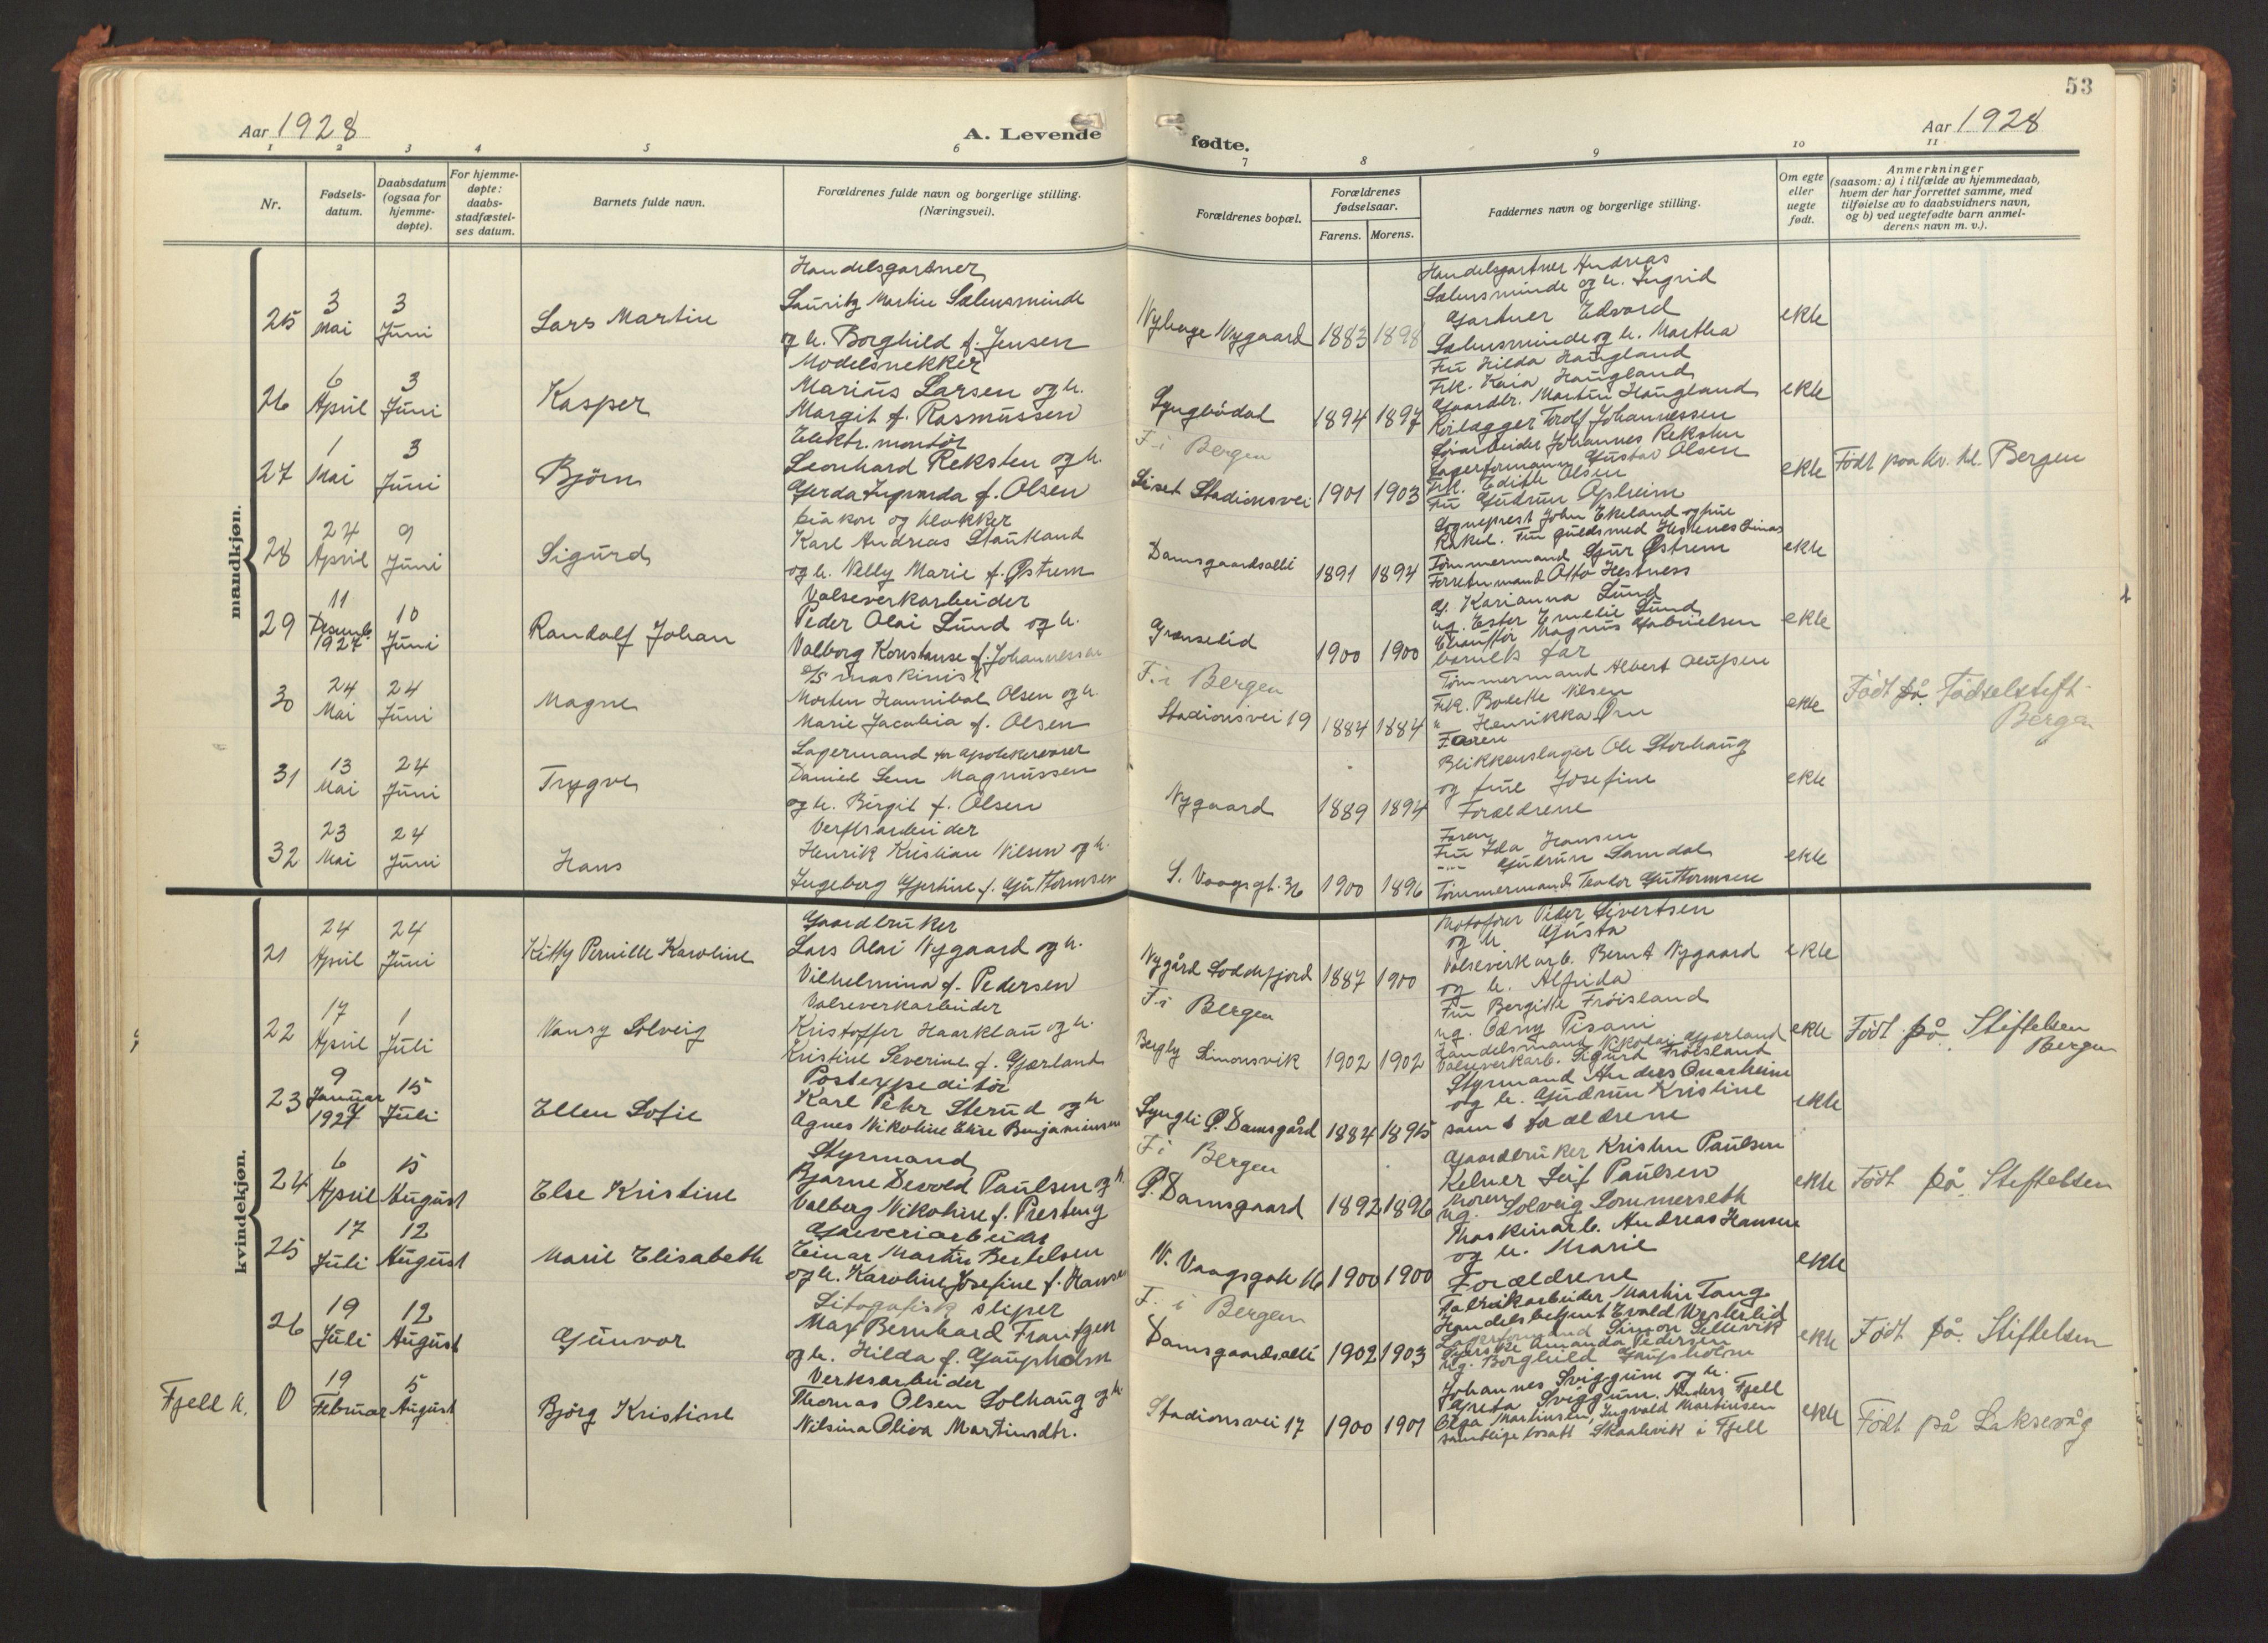 53
Aar 1928
A. Levende fødte.
Aar 1928
1 2 3 4 5 6 7 8 9 10 11
Nr.
Fødsels-
datum.
Daabsdatum
(ogsaa for
hjemme-
døpte).
For hjemme-
døpte:
daabs-
stadfæstel-
ses datum.
Barnets fulde navn.
Forældrenes fulde navn og borgerlige stilling.
(Næringsvei).
Forældrenes bopæl.
Forældrenes
fødselsaar.
Farens. Morens.
Faddernes navn og borgerlige stilling.
Om egte
eller
uegte
født.
Anmerkninger
(saasom: a) i tilfælde av hjemmedaab,
hvem der har forrettet samme, med
tilføielse av to daabsvidners navn,
og b) ved uegtefødte barn anmel-
derens navn m. v.).
mandkjøn.
25
3
Mai
3
Juni
Lars Martin
Handelsgartner
Lauritz Martin Sælensminde
og h. Borghild f. Jensen
Nyhage Nygaard
1883 1898
Handelsgartner Andreas
Sælensminde og h. Ingrid
Gartner Edvard
Sælensminde og h. Martha
ekte
26
6
April
3
Juni
Kasper
Modelsnekker
Marius Larsen og h.
Margit f. Rasmussen
Lyngbödal
1894 1897
Fru Hilda Haugland
Frk. Kaia Haugland
Gaardbr. Martin Haugland
Rörlægger Trolf Johannessen
ekte
27
1
Mai
3
Juni
Björn
Elektr. montör
Leonhard Reksten og h.
Gerda Ingvarda f. Olsen
F. i Bergen
Liset Stadionsvei
1901 1903
Johannes Reksten
Lagerformann Gustav Olsen
Frk. Edith Olsen
Fru Gudrun Apheim
ekte
Født paa kv. kl. Bergen
28
24
April
9
Juni
Sigurd
Diakon og klokker
Karl Andreas Staukland
og h. Nelly Marie f. Østrem
Damsgaardsallé
1891 1894
Sogneprest John Ekeland og frue
Rakel. Fru guldsmed Hestenes
Tømmermand Gjur Østrem
Forretn.mand Otto Hestness
ekte
29
11
Desemb.
1927
10
Juni
Randolf Johan
Valseverkarbeider
Peder Olai Lund og h.
Valborg Konstanse f. Johannessen
Grænselid
1900 1900
G. Karianna Lund
ug. Ester Emelie Lund
Chaufför Magnus Gabrielsen
barnets far
ekte
30
24
Mai
24
Juni
Magne
D/S maskinist
Morten Hannibal Olsen og h.
Marie Jacobia f. Olsen
F. i Bergen
Stadionsvei 19
1884 1884
Tömmermand Albert
Frk. Bolette Nilsen
" Henrikka Örn
Faren
ekte
Født på Fødselstift.
Bergen
31
13
Mai
24
Juni
Trygve
Lagermand for apotekervarer
Daniel Sem Magnussen
og h. Birgit f. Olsen
Nygaard
1889 1894
Blikkenslager Ole Storhaug
og frue Josefine
Forældrene
ekte
32
23
Mai
24
Juni
Hans
Verftsarbeider
Henrik Kristian Nilsen og h.
Ingeborg Gjertine f. Guttormsen
S. Vaagsgt. 36
1900 1896
Faren
Fru Ida Hansen
" Gudrun Samdal
Tömmermand Teodor Guttormsen
ekte
kvindekjøn.
21
24
April
24
Juni
Kitty Pernille Karoline
Gaardbruker
Lars Olai Nygaard og h.
Vilhelmina f. Pedersen
Nygård Loddefjord
1887 1900
Motorfører Peder Sivertsen
og h. Gusta
Valseverkarb. Bernt Nygaard
og h. Alfrida
ekte
22
17
April
1
Juli
Nansy Solveig
Valseverkarbeider
Kristoffer Haarklau og h.
Kristine Severine f. Gjærland
F. i Bergen
Bergly Simonsvik
1902 1902
Fru Bergitte Fröisland
ug. Odny Pisani
Handelsmand Nikolai Gjærland
Valseverkarb. Sigurd Fröisland
ekte
Født på Stiftelsen
Bergen
23
9
Januar
1927
15
Juli
Ellen Sofie
Postexpeditör
Karl Peter Sterud og h
Agnes Nikoline Elise Benjaminsen
Lyngli Ö. Damsgård
1884 1895
Styrmand Anders Qvarheim
og h. Gudrun Kristine
samt forældrene
ekte
24
6
April
15
August
Else Kristine
Styrmand
Bjarne Devold Paulsen og h.
Valborg Nikoline f. Presteng
F. i Bergen
Ö. Damsgaard
1892 1896
Gaardbruker Kristen Paulsen
Kelner Leif Paulsen
Moren
ug. Solveig Sommerseth
ekte
Født på Stiftelsen
25
17
Juli
12
August
Marie Elisabeth
Garveriarbeider
Einar Martin Bertelsen
og h. Karoline Josefine f. Hansen
N. Vaagsgate 16
1900 1900
Maskinarb. Andreas Hansen
og h. Marie
Forældrene
ekte
26
19
Juli
12
August
Gunvor
Litografisk sliper
Max Bernhard Frantzen
og h. Hilda f. Gaupholm
F. i Bergen
Damsgaardsallé
1902 1903
Fabrikarbeider Martin Tang
Handelsbetjent Evald Westerlid
Lagerformand Simon Sellevik
Amanda Pedersen
ug. Borghild Gaupholm
ekte
Født på Stiftelsen
Fjell k.
0
19
Februar
5
August
Björg Kristine
Verksarbeider
Thomas Olsen Solhaug og h.
Nilsina Oliva Martinsdtr.
Stadionsvei 17
1900 1901
Johannes Sviggum og h.
Agneta Sviggum. Anders Fjell
Olga Martinsen, Ingvald Martinsen
samtlige bosatt Skaalevik i Fjell
ekte
Født på Laksevåg